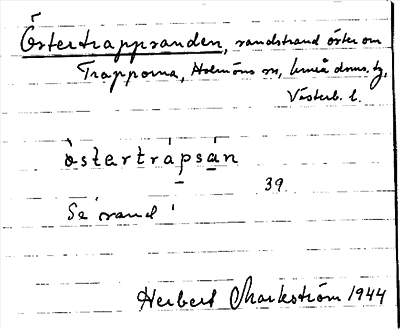 Östertrappsanden, sandstrand öster om
Trapporna, Holmöns sn, Umeå doms. tg,
Västerb. l.
östertrapsan
39
Se 'sand'
Herbert Markström 1944